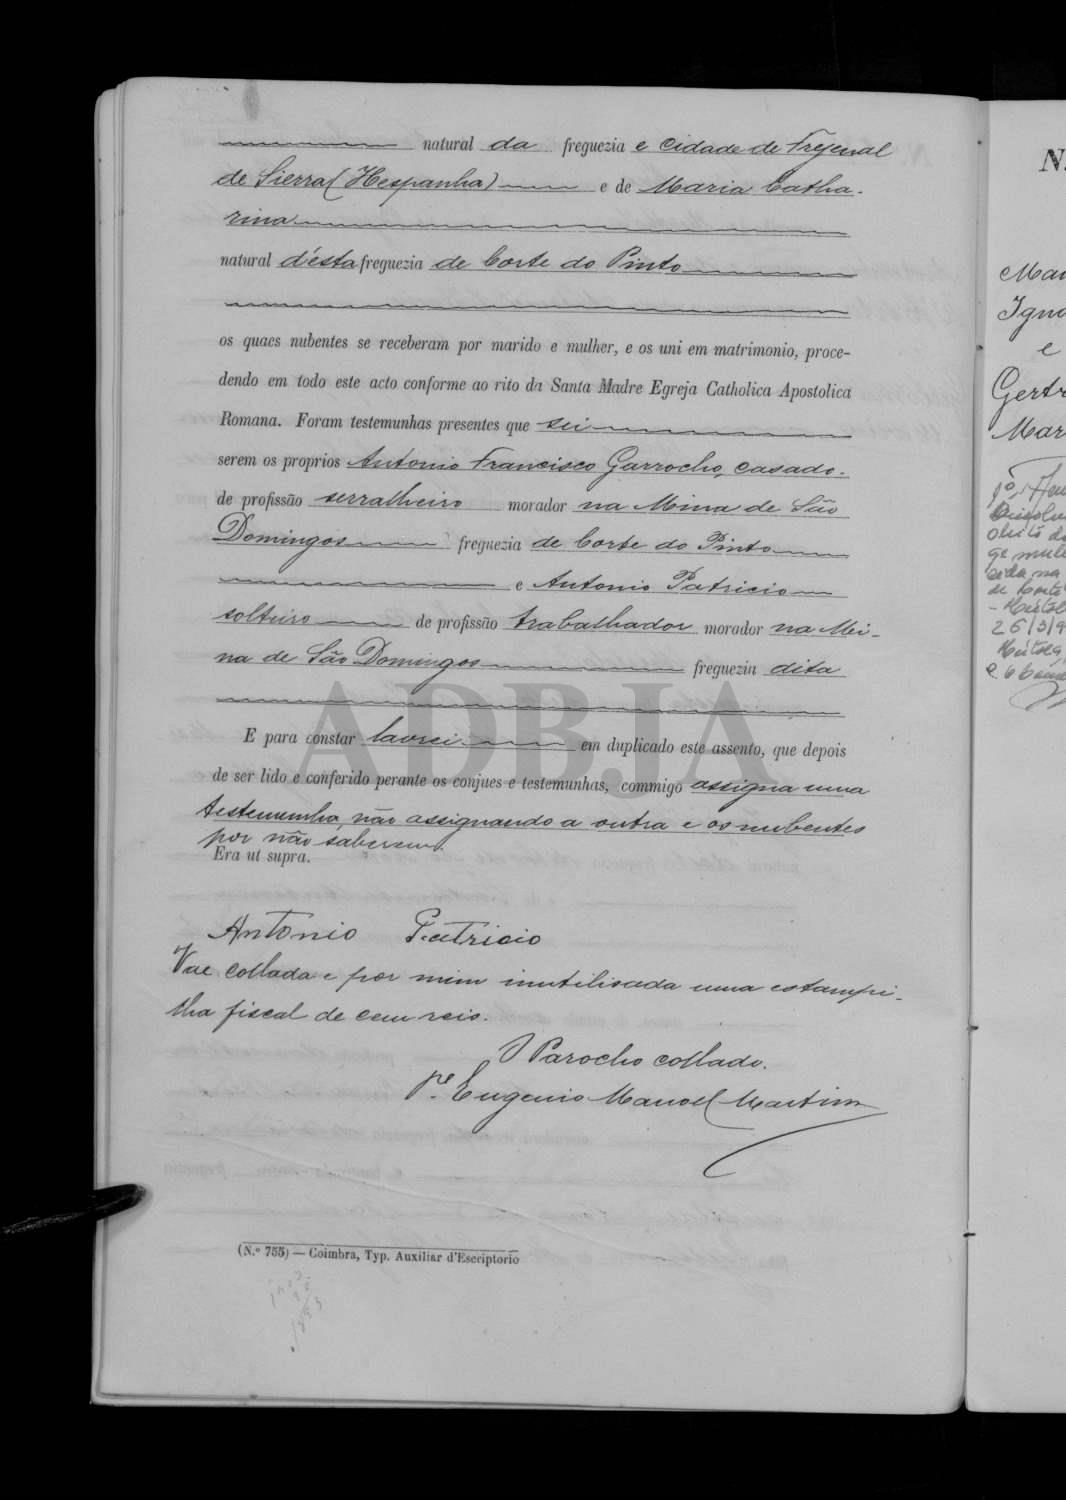 natural da freguezia e cidade de Frejenal
de Sierra (Hespanha) e de Maria Catha-
rina
natural d'ésta freguezia de Corte do Pinto
os quaes nubentes se receberam por marido e mulher, e os uni em matrimonio, proce-
dendo em todo este acto conforme ao rito da Santa Madre Egreja Catholica Apostolica
Romana. Foram testemunhas presentes que sei
serem os proprios Antonio Francisco Garrocho, casado
de profissão serralheiro morador na Mina de São
Domingos freguezia de Corte do Pinto
e Antonio Patricio
solteiro de profissão trabalhador morador na Mi-
na de São Domingos freguezia dita
ADBJA
E para constar lavrei em duplicado este assento, que depois
de ser lido e conferido perante os conjues e testemunhas, commigo assigna uma
testemunha, não assignando a outra e os nubentes
por não saberem.
Era ut supra.
Antonio Patricio
Vae collada e por mim inutilisada uma estampi-
lha fiscal de cem reis.
O Parocho collado.
Pe. Eugenio Manoel Martins
(N.º 755) — Coimbra, Typ. Auxiliar d'Escriptorio
N.
Mar
Igna
e
Gertr
Mar
26/3/9